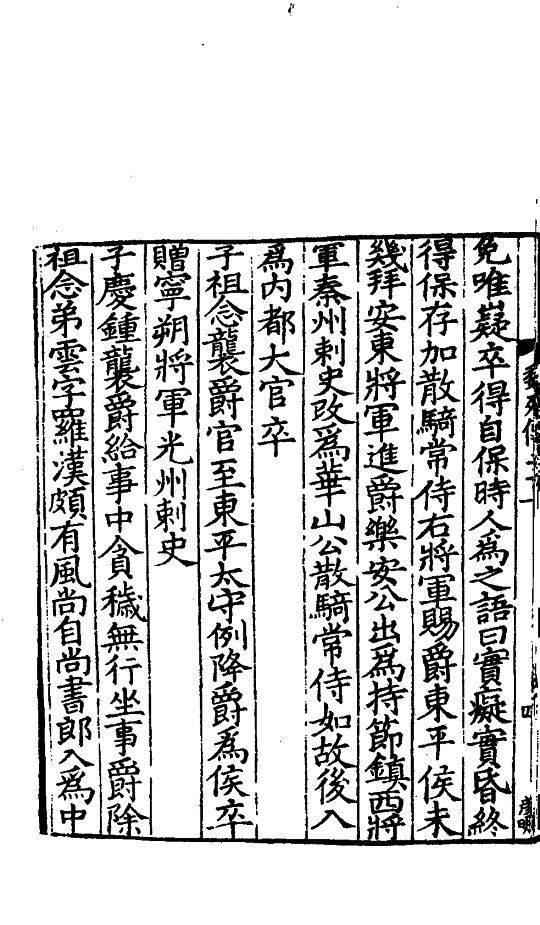 免唯嶷卒得自保時人爲之語曰實癡實昏終
得保存加散騎常侍右將軍賜爵東平侯未
幾拜安東將軍進爵樂安公出爲持節鎮西將
軍秦州刺史改爲華山公散騎常侍如故後入
爲內都大官卒
子祖念襲爵官至東平太守例降爵爲侯卒
贈寧朔將軍光州刺史
子慶鍾襲爵給事中貪穢無行坐事爵除
祖念弟雲字羅漢頗有風尚自尚書郎入爲中